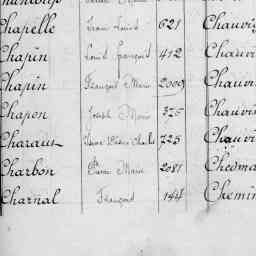 Chapelle 621 Chauvi
Chapin Louis François 412 Chauvi
Chapin François Marie 2009 Chauvi
Chapon Joseph Marie 375 Chauvi
Charaux Pierre Marie Charles 725 Chauvi
Charbon Pierre Marie 2081 Chedma
Charnal François 144 Chemin